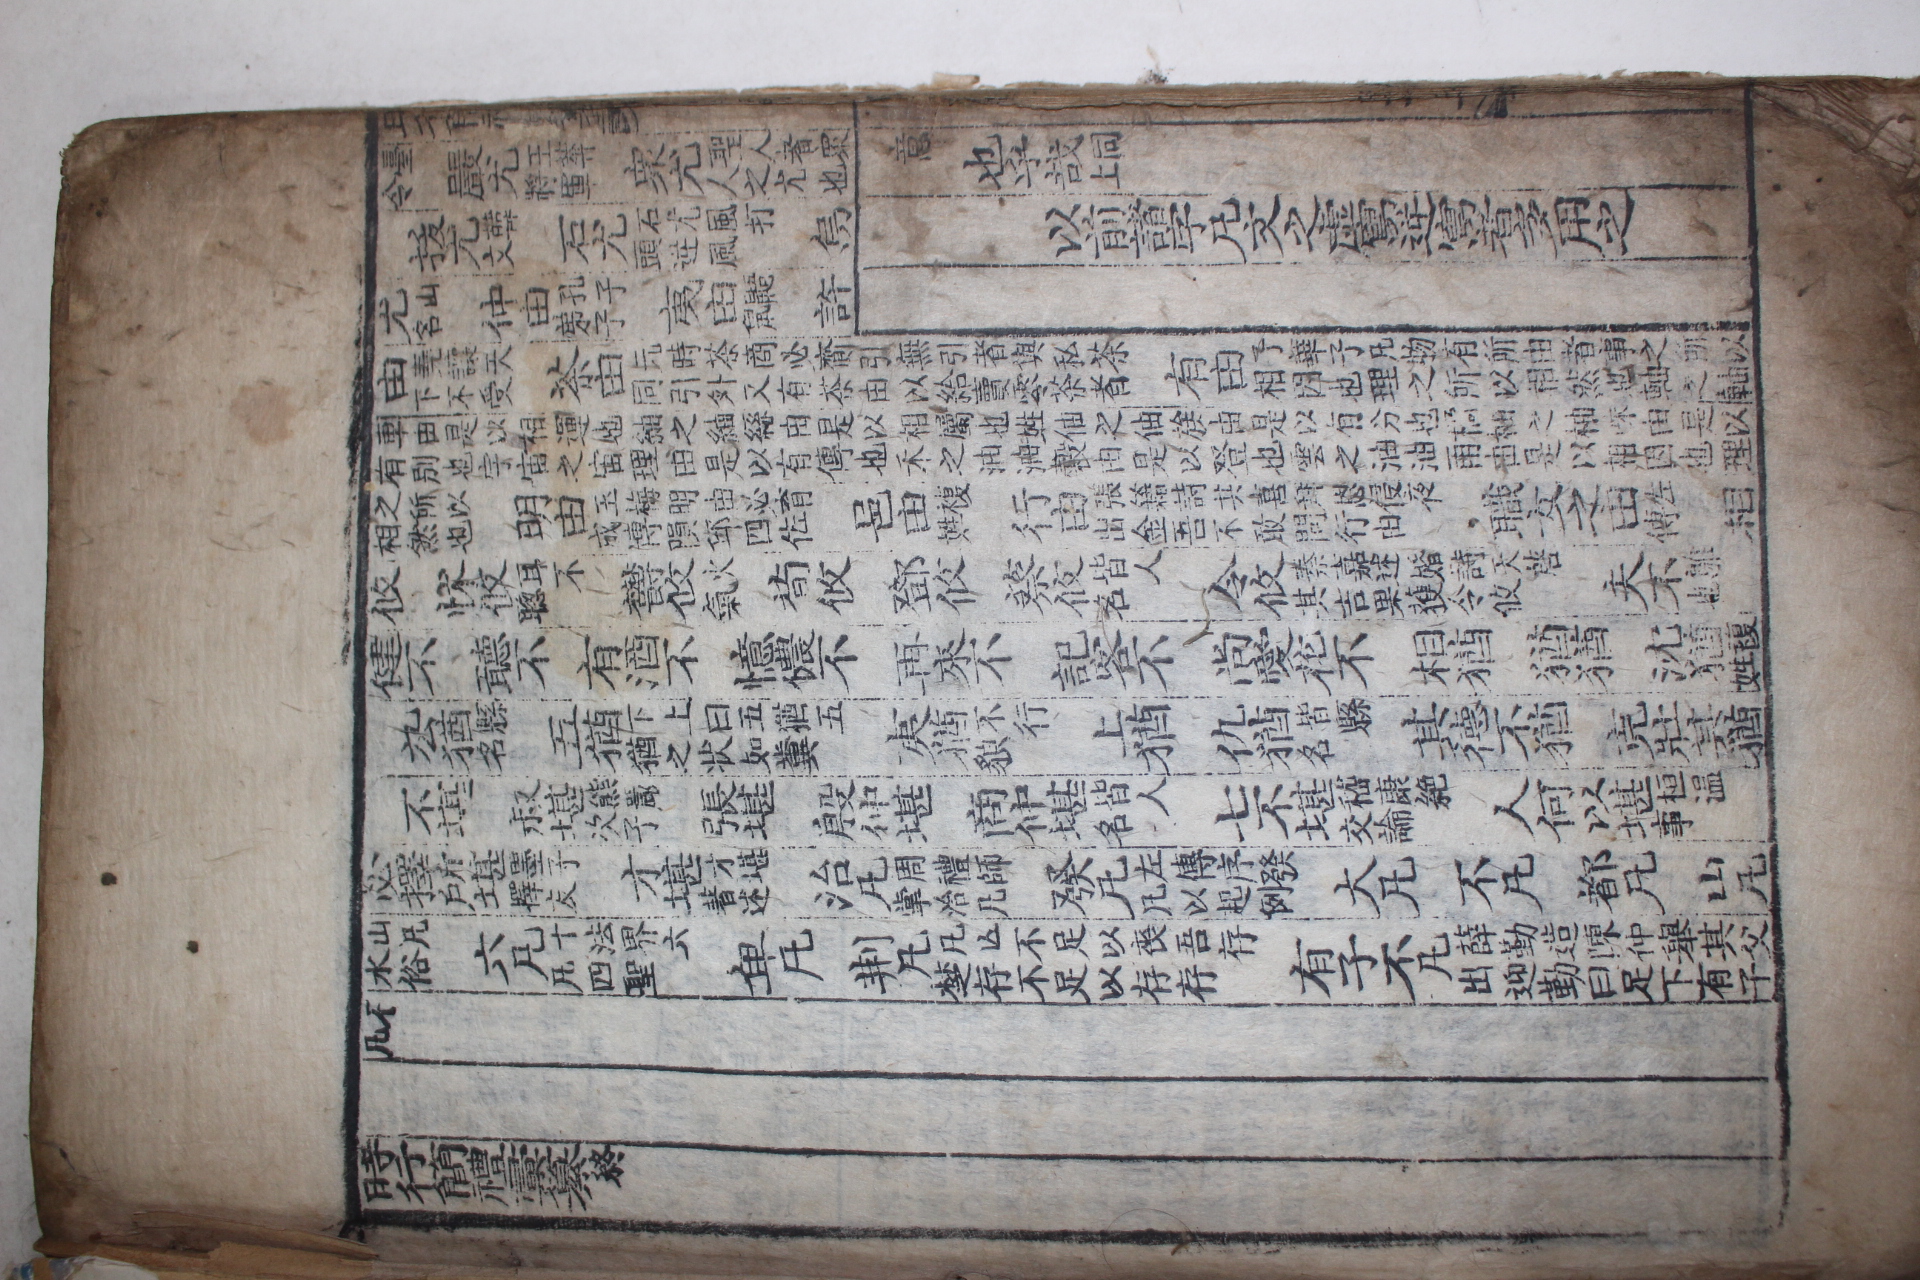 臺令 嚴尤王莽將軍 衆尤聖人者衆人之尤也
意 也乎哉同上
拔尤韓文 石尤石尤風打頭逆風 烏
以前諸字凡文之虛寫逆寫者多用之
尤山名 仲由孔子弟子 夷由鼯鼠 許
由堯讓天下不受 茶由元時茶商必賫引無引者與私茶同引外又有茶由以給賣零茶者 有由子華子凡物有所由者事之所以相因也理之所以相然也軸之軸
車由是以相運也紬之紬絲由是以相屬也姓伷之伷族由是以有分也柚之柚味由是以有別也宇宙之宙理由是以有傳也禾之油油穀由是以登也雲之油油雨由是以相因也理
之所以相然也 明由王梅明由必育成博隕邱四佐 邑由複姓 行由張籍詩其喜拜恩侵夜出金吾不敢問行由 職女之由左傳 相
攸 怵攸耳不聰 鬱攸火氣 荀攸 鄧攸 蔡攸皆人名 令攸秦嘉述婚詩天啓其吉果獲令攸 夫不鵻也
健不 聽不 有酒不 憶儂不 再來不 記客不 尚愛花不 相猶 猶猶 沈猶複姓
厹猶縣名 五猶下上曰五猶五猶之狀如糞 夷猶不行貌 上猶 仇猶皆縣名 其德不猶 克壯其猶
不堪 叔堪熊嚴次子 張堪 殷仲堪 商仲堪皆人名 七不堪嵇康絶交論 人何以堪桓温事
必擇所堪墨子擇友 才堪才堪著述 治凡周禮師掌治凡 發凡左傳序發凡以起例 大凡 不凡 都凡 山凡
山凡水俗 六凡十法界六凡四聖 隼凡 荆凡凡亾不足以喪吾存楚存不足以存存 有子不凡薛勤造陳仲舉其父出迎勤曰足下有子
不凡
時行簡禮彙纂終